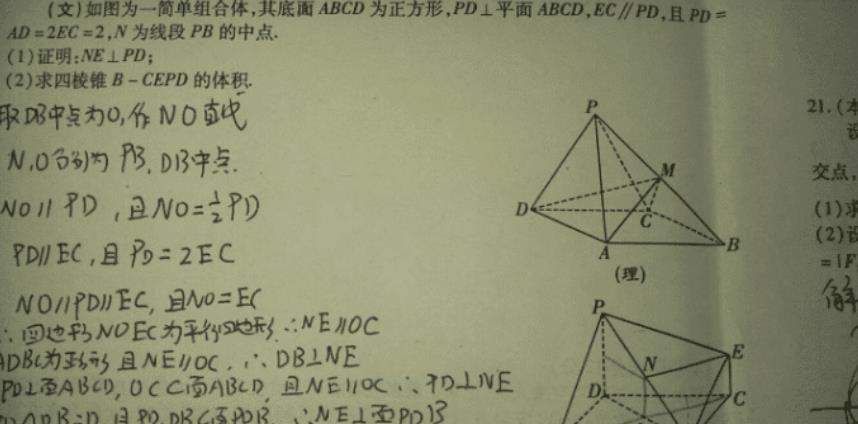 (文)如图为一简单组合体,其底面 ABCD 为正方形,PD⊥平面 ABCD,EC∥PD,且 PD=
AD=2EC=2,N 为线段 PB 的中点.
(1)证明:NE⊥PD;
(2)求四棱锥 B-CEPD 的体积.
取DB中点为O,作 NO 直线
N,O分别为 PB,DB中点.
NO∥PD,且NO=½PD
PD∥EC,且PD=2EC
NO∥PD∥EC,且NO=EC
∴四边形NOEC为平行四边形 ∴NE∥OC
ADBC为 且NE∥OC.∴DB⊥NE
PD⊥面ABCD, OC⊂面ABCD,且NE∥OC ∴PD⊥NE
DB=D,且PD,DB⊂面PDB ∴NE⊥面PDB
P
D
M
C
A
B
(理)
P
N
E
D
C
21.(本
设
交点,
(1)求
(2)设
=|F
解